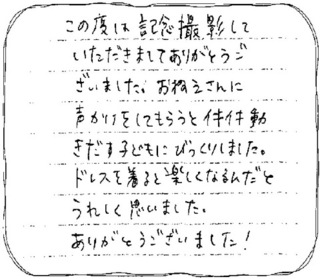 この度は記念撮影して
いただきましてありがとうご
ざいました。おねえさんに
声かけをしてもらうとイキイキ動
きだす子どもにびっくりしました。
ドレスを着ると楽しくなるんだと
うれしく思いました。
ありがとうございました!